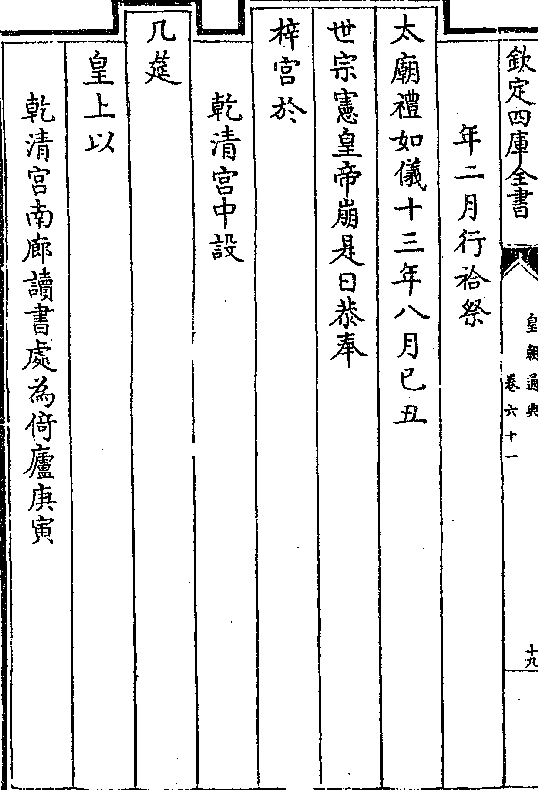 欽定四庫全書
皇朝通典
卷六十一
十九
年二月行祫祭
太廟禮如儀十三年八月己丑
世宗憲皇帝崩是日恭奉
梓宮於
乾清宮中設
几筵
皇上以
乾清宮南廊讀書處為倚廬庚寅